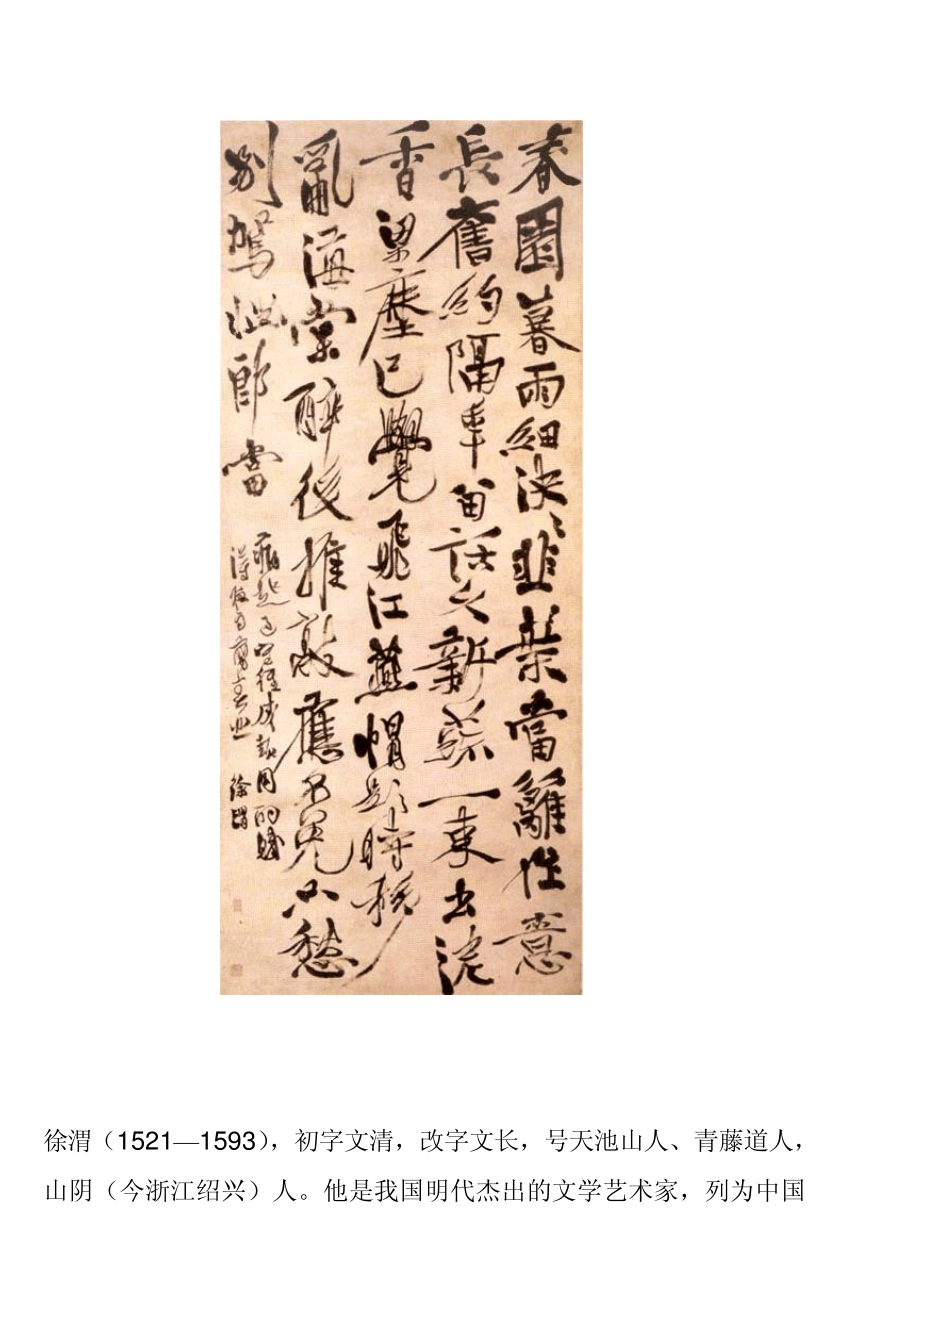 春園暮雨細泱泱韭葉當籬作意
長舊約隔年留話久新蔬一束出泥
香梁塵已覺飛江燕帽影時移
亂海棠醉後推敲應不免不愁
別駕惱郎當
徐渭
徐渭（1521—1593），初字文清，改字文长，号天池山人、青藤道人，
山阴（今浙江绍兴）人。他是我国明代杰出的文学艺术家，列为中国